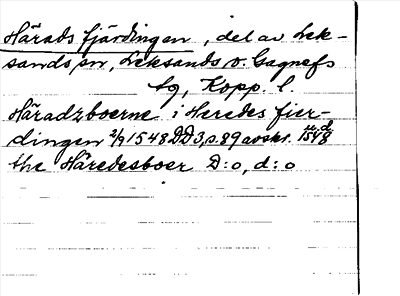 Härads fjärdingen, del av Lek-
sands sn, Leksands o. Gagnefs
tg, Kopp. l.
Häradzboerne i Heredes fier-
dingen 2/9 1548 DD3, s. 89 avskr.
the Häredesboer D:o, d:o